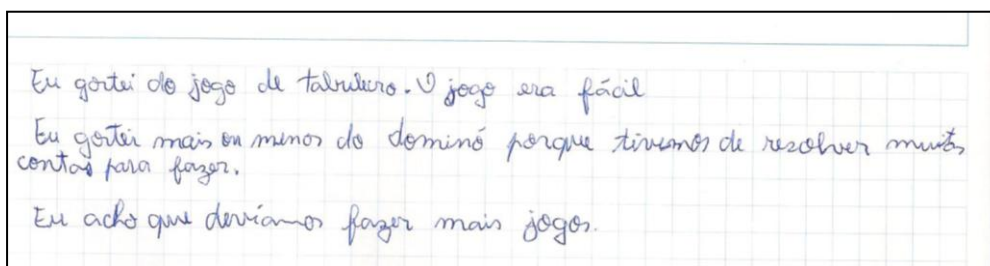 Eu gostei do jogo de tabuleiro. O jogo era fácil
Eu gostei mais ou menos do dominó porque tivemos de resolver muitas
contas para fazer.
Eu acho que devíamos fazer mais jogos.